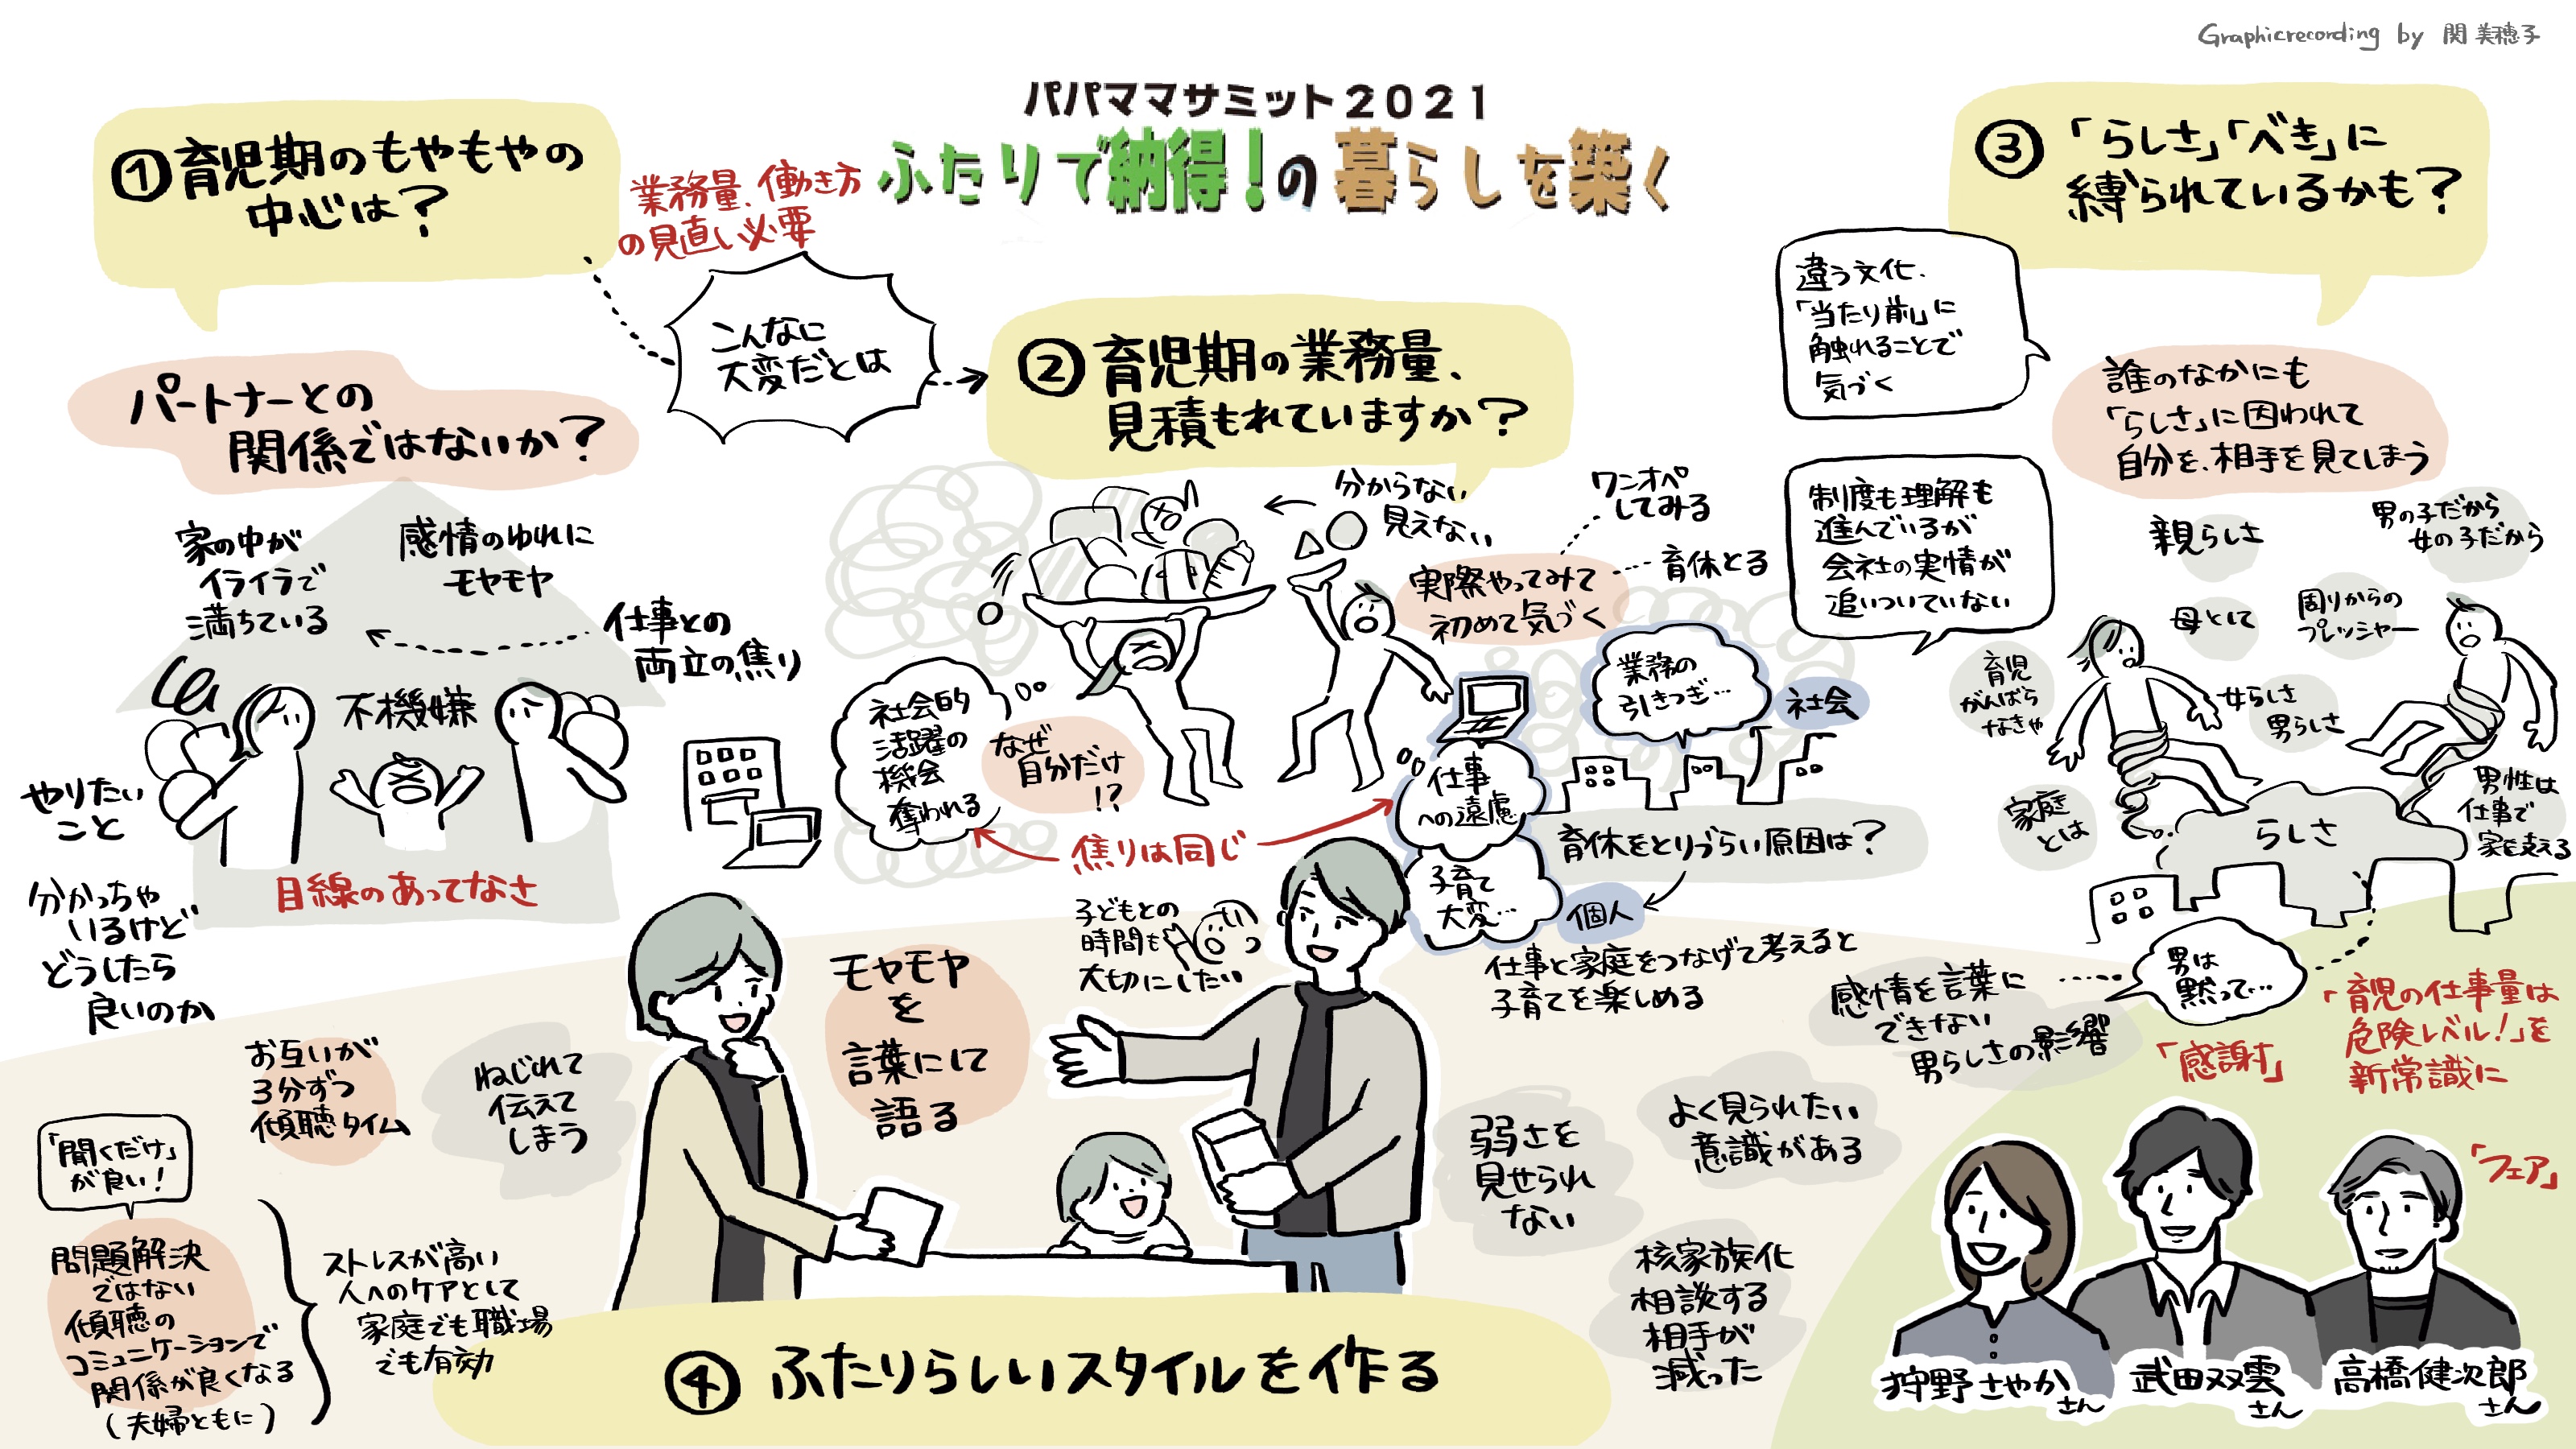 Graphicrecording by 関 美穂子
パパママサミット2021
ふたりで納得!の暮らしを築く
①育児期のもやもやの
中心は?
業務量、働き方
の見直し必要
こんなに
大変だとは
パートナーとの
関係ではないか?
家の中が
イライラで
満ちている
感情のゆれに
モヤモヤ
仕事との
両立の焦り
不機嫌
やりたい
こと
目線のあってなさ
分かっちゃ
いるけど
どうしたら
良いのか
②育児期の業務量、
見積もれていますか?
分からない
見えない
ワンオペ
してみる
育休とる
実際やってみて
初めて気づく
社会的
活躍の
機会
奪われる
なぜ
自分だけ
!?
焦りは同じ
仕事
への遠慮
子育て
大変…
業務の
引きつぎ…
社会
育休をとりづらい原因は?
個人
子どもとの
時間も
大切にしたい
仕事と家庭をつなげて考えると
子育てを楽しめる
③「らしさ」「べき」に
縛られているかも?
違う文化、
「当たり前」に
触れることで
気づく
誰のなかにも
「らしさ」に囚われて
自分を、相手を見てしまう
制度も理解も
進んでいるが
会社の実情が
追いついていない
親らしさ
男の子だから
女の子だから
母として
周りからの
プレッシャー
育児
がんばら
なきゃ
女らしさ
男らしさ
家庭
とは
らしさ
男性は
仕事で
家を支える
男は
黙って…
感情を言葉に
できない
男らしさの影響
「育児の仕事量は
危険レベル!」を
新常識に
「感謝」
「フェア」
弱さを
見せられ
ない
よく見られたい
意識がある
核家族化
相談する
相手が
減った
モヤモヤ
を
言葉にして
語る
お互いが
3分ずつ
傾聴タイム
ねじれて
伝えて
しまう
「聞くだけ」
が良い!
問題解決
ではない
傾聴の
コミュニケーションで
関係が良くなる
(夫婦ともに)
ストレスが高い
人へのケアとして
家庭でも職場
でも有効
④ ふたりらしいスタイルを作る
狩野さやか
さん
武田双雲
さん
高橋健次郎
さん